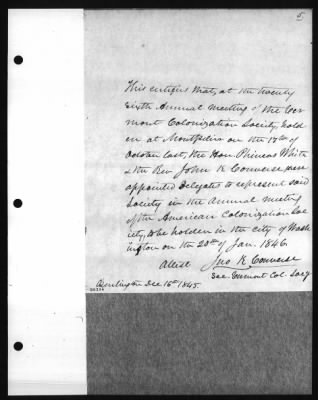 5
This certifies that, at the twenty
sixth Annual Meeting of the Ver
mont Colonization Society, hold
en at Montpelier on the 17th of
October last, the Hon. Phineas White
& the Rev. John K Converse were
appointed Delegates to represent said
Society in the Annual Meeting
of the American Colonization Soc
iety, to be holden in the city of Wash
ington on the 20th of Jan. 1846.
Attest Jno K Converse
Sec. Vermont Col. Socy
Burlington Dec 16th 1845.